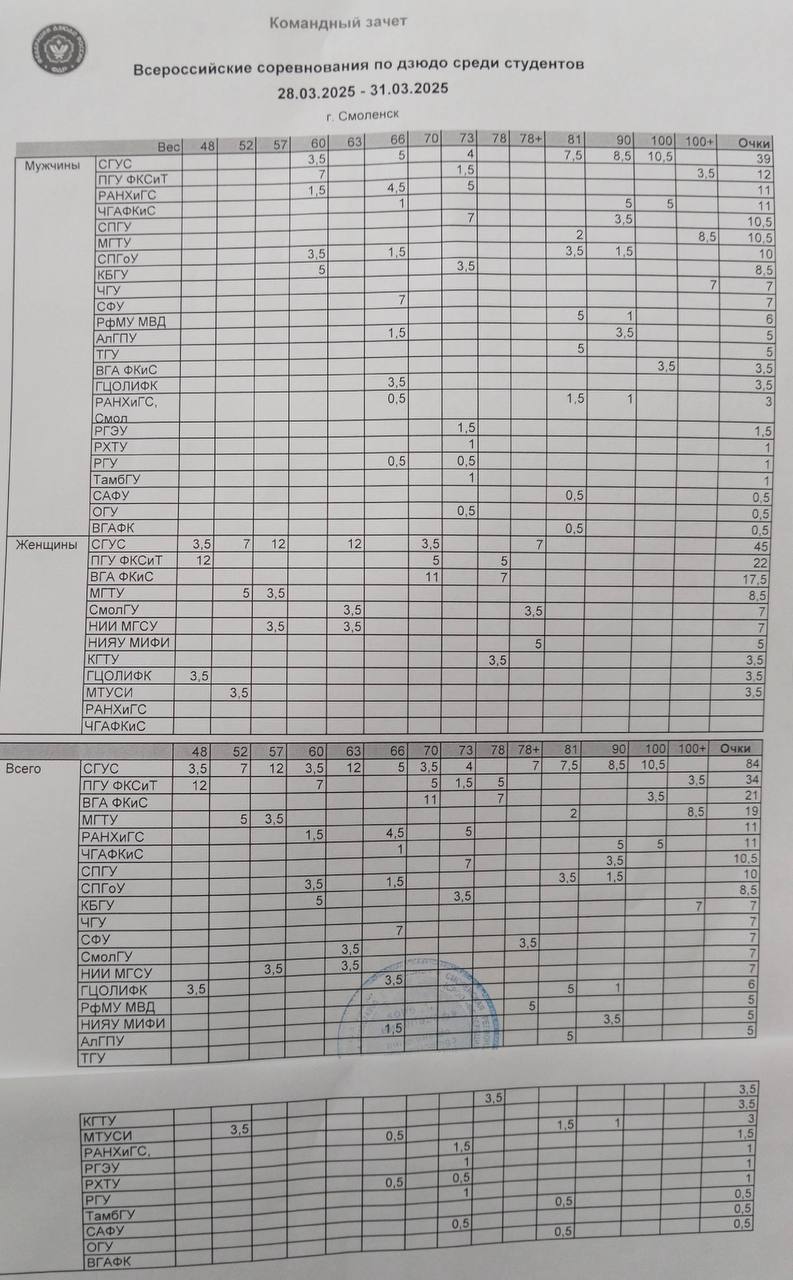 Командный зачет
Всероссийские соревнования по дзюдо среди студентов
28.03.2025 - 31.03.2025
г. Смоленск
Вес 48 52 57 60 63 66 70 73 78 78+ 81 90 100 100+ Очки
Мужчины СГУС 3,5 5 4 7,5 8,5 10,5 39
ПГУ ФКСиТ 7 1,5 3,5 12
РАНХиГС 1,5 4,5 5 11
ЧГАФКиС 1 5 5 11
СПГУ 7 3,5 10,5
МГТУ 2 8,5 10,5
СПГоУ 3,5 1,5 3,5 1,5 10
КБГУ 5 3,5 8,5
ЧГУ 7 7
СФУ 7 7
РфМУ МВД 5 1 6
АлГПУ 1,5 3,5 5
ТГУ 5 5
ВГА ФКиС 3,5 3,5
ГЦОЛИФК 3,5 3,5
РАНХиГС, 0,5 1,5 1 3
Смол
РГЭУ 1,5 1,5
РХТУ 1 1
РГУ 0,5 0,5 1
ТамбГУ 1 1
САФУ 0,5 0,5
ОГУ 0,5 0,5
ВГАФК 0,5 0,5
Женщины СГУС 3,5 7 12 12 3,5 7 45
ПГУ ФКСиТ 12 5 5 22
ВГА ФКиС 11 7 17,5
МГТУ 5 3,5 8,5
СмолГУ 3,5 3,5 7
НИИ МГСУ 3,5 3,5 7
НИЯУ МИФИ 5 5
КГТУ 3,5 3,5
ГЦОЛИФК 3,5 3,5
МТУСИ 3,5 3,5
РАНХиГС
ЧГАФКиС
48 52 57 60 63 66 70 73 78 78+ 81 90 100 100+ Очки
Всего СГУС 3,5 7 12 3,5 12 5 3,5 4 7 7,5 8,5 10,5 84
ПГУ ФКСиТ 12 7 5 1,5 5 3,5 34
ВГА ФКиС 11 7 3,5 21
МГТУ 5 3,5 2 8,5 19
РАНХиГС 1,5 4,5 5 11
ЧГАФКиС 1 5 5 11
СПГУ 7 3,5 10,5
СПГоУ 3,5 1,5 3,5 1,5 10
КБГУ 5 3,5 8,5
ЧГУ 7 7
СФУ 7 7
СмолГУ 3,5 3,5 7
НИИ МГСУ 3,5 3,5 7
ГЦОЛИФК 3,5 3,5 7
РфМУ МВД 5 1 6
НИЯУ МИФИ 5 5
АлГПУ 1,5 3,5 5
ТГУ 5 5
КГТУ 3,5 3,5
МТУСИ 3,5 3,5
РАНХиГС, 0,5 1,5 1 3
РГЭУ 1,5 1,5
РХТУ 1 1
РГУ 0,5 0,5 1
ТамбГУ 1 1
САФУ 0,5 0,5
ОГУ 0,5 0,5
ВГАФК 0,5 0,5